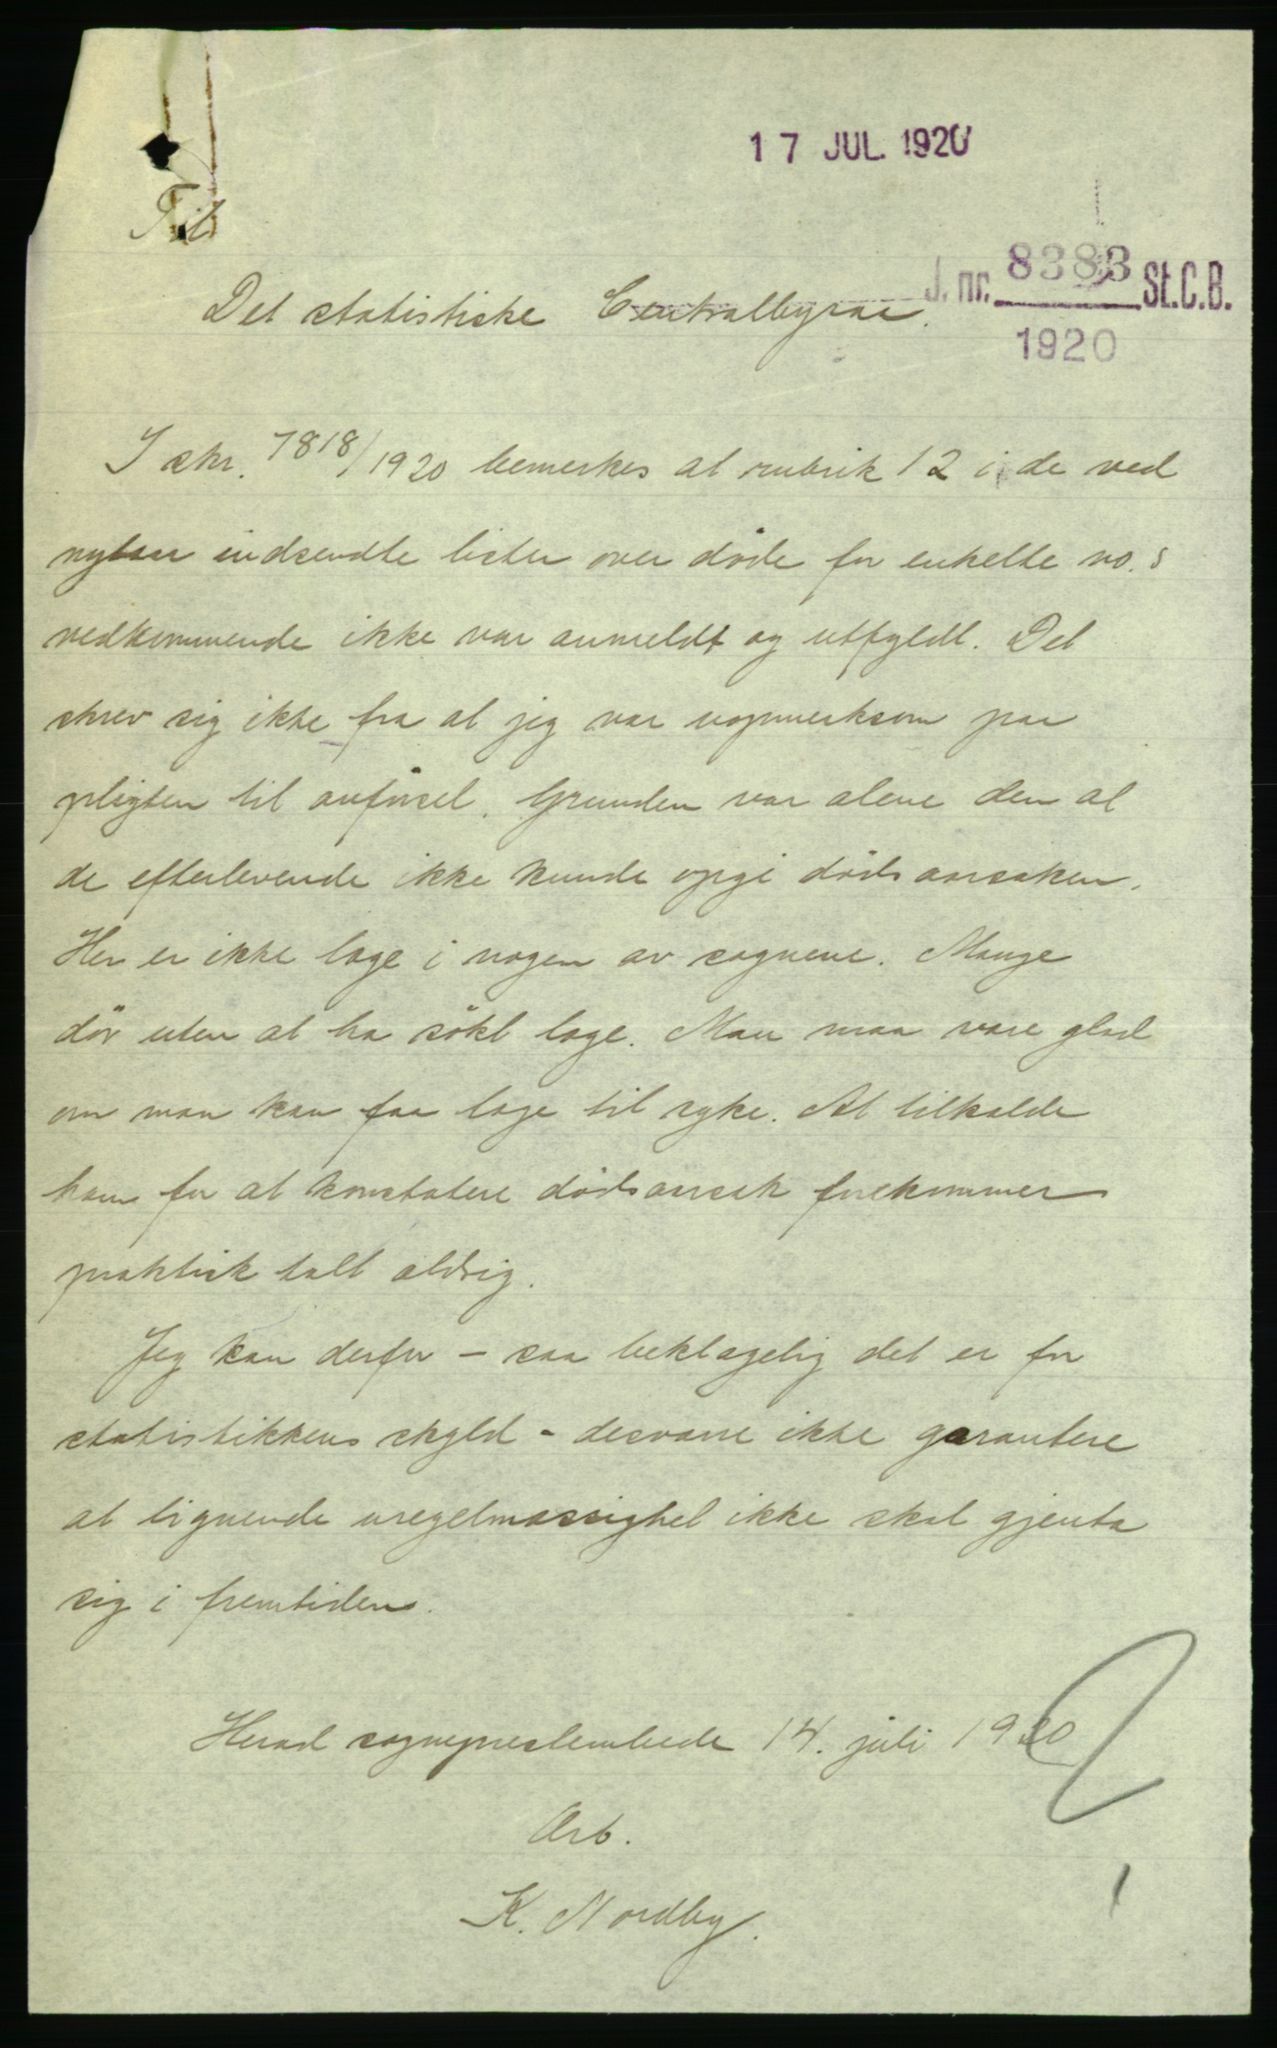 17 JUL. 1920
Til
J. nr. 8383 St.C.B.
1920
Det statistiske Centralbyraa.
I skr. 7818/1920 bemerkes at rubrik 12 i de ved
nytaar indsendte lister over døde for enkelte no.s
vedkommende ikke var anmeldt og utfyldt. Det
skrev sig ikke fra at jeg var uopmerksom paa
pligten til anførsel. Grunden var alene den at
de efterlevende ikke kunde opgi dødsaarsaken.
Her er ikke læge i nogen av sognene. Mange
dör uten at ha sökt læge. Man maa være glad
om man kan faa læge til syke. At tilkalde
ham for at konstatere dødsaarsak forekommer
praktisk talt aldrig.
Jeg kan derfor - saa beklagelig det er for
statistikkens skyld - desværre ikke garantere
at lignende uregelmæssighet ikke skal gjenta
sig i fremtiden.
Herad sogneprestembede 14. juli 1920
Ærb.
K. Nordby.